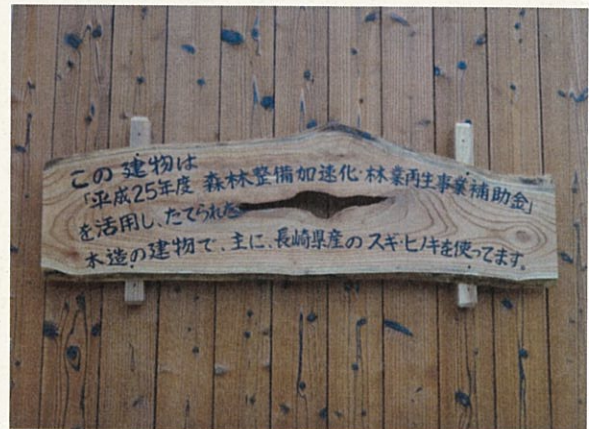 この建物は
「平成25年度 森林整備加速化・林業再生事業補助金」
を活用し、たてられた
木造の建物で、主に、長崎県産のスギ・ヒノキを使ってます。